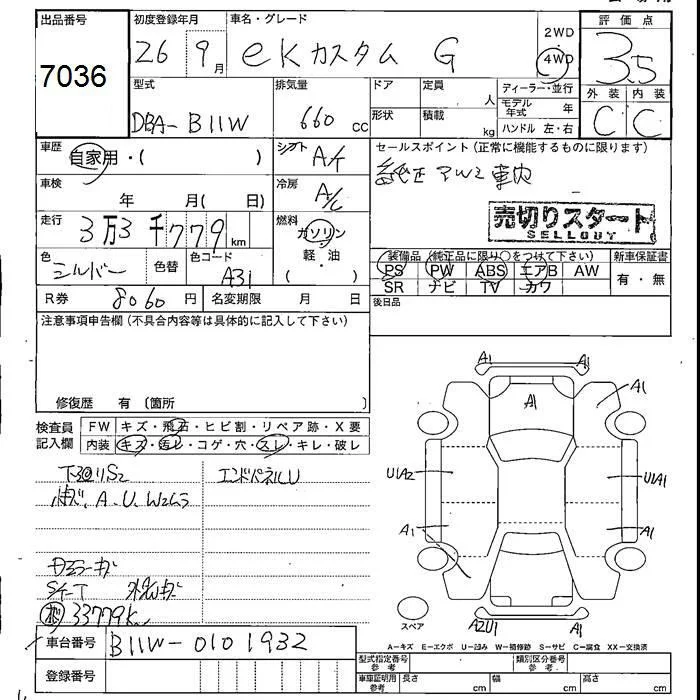 出品番号
7036
初度登録年月
26 9月
車名・グレード
eKカスタム G
2WD
4WD
評価点
3.5
外装 内装
C C
型式
DBA-B11W
排気量
660 cc
ドア
定員
人
形状
積載
kg
ディーラー・並行
モデル年式 年
ハンドル 左・右
車歴
自家用・( )
シフト
A/T
セールスポイント(正常に機能するものに限ります)
純正アルミ 車内
車検
年 月( 日)
冷房
A/C
売切りスタート
SELLOUT
走行
3万3千779km
燃料
ガソリン
軽・油
( )
色
シルバー
色替
色コード
A31
装備品(純正品に限り○をつけて下さい)
新車保証書
PS PW ABS エアB AW
SR ナビ TV カワ
有・無
R券
8060円
名変期限 月 日
後日品
注意事項申告欄(不具合内容等は具体的に記入して下さい)
修復歴 有〔箇所 〕
検査員記入欄
FW キズ・飛石・ヒビ割・リペア跡・X要
内装 キズ・汚レ・コゲ・穴・スレ・キレ・破レ
下廻りS2
エンドパネルU
小キズ、A、U、W2ムラ
ドアミラーキズ
33779km
A1 A1
A1
A1
U1A2
U1A1
A1
A1
A2U1
A1
スペア
A=キズ E=エクボ U=凹み W=補修跡 S=サビ C=腐食 XX=交換済
車台番号
B11W-0101932
登録番号
型式指定番号
参考
類別区分番号
参考
車庫証明用
参考
長さ cm
幅 cm
高さ cm